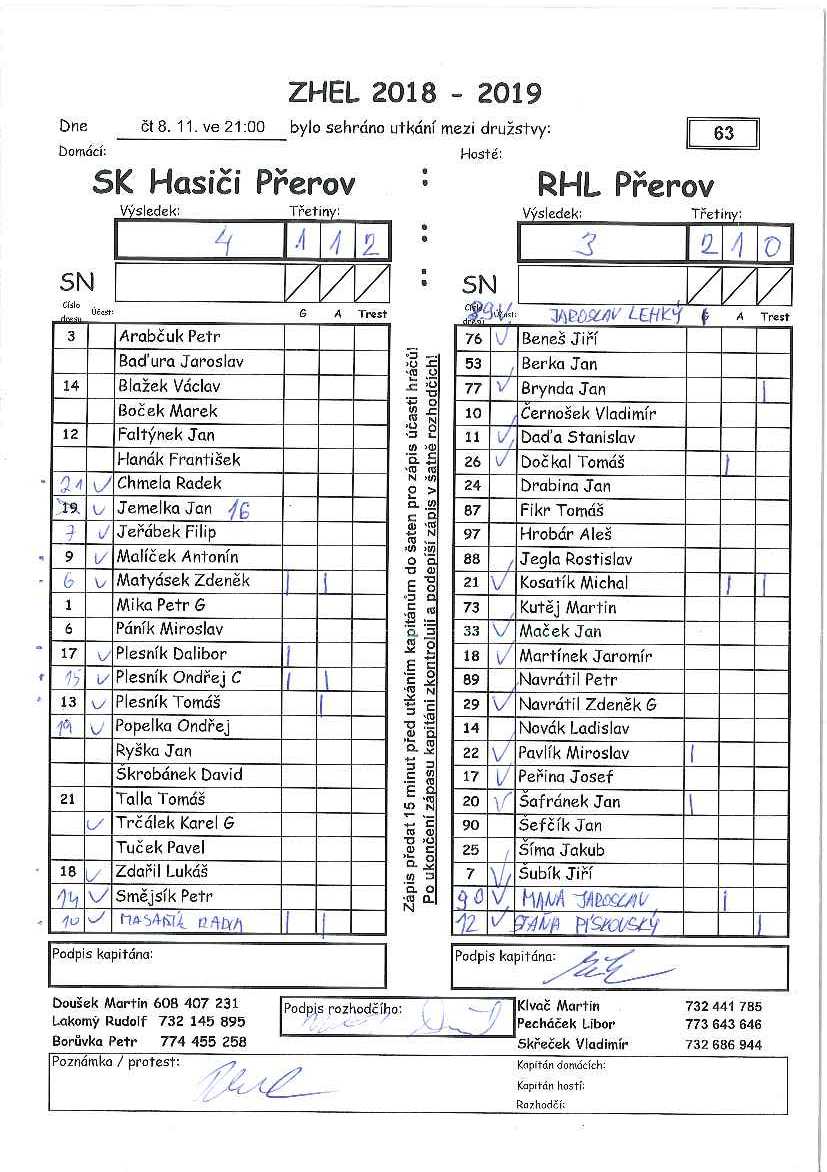 ZHEL 2018 - 2019
Dne čt 8. 11. ve 21:00 bylo sehráno utkání mezi družstvy: 63
Domácí: Hosté:
SK Hasiči Přerov : RHL Přerov
Výsledek: Třetiny: Výsledek: Třetiny:
4 1 1 2 : 3 2 1 0
SN : SN
Číslo dresu Účast: G A Trest
Číslo dresu Účast: JAROSLAV LEHKÝ G A Trest
3 Arabčuk Petr
Baďura Jaroslav
14 Blažek Václav
Boček Marek
12 Faltýnek Jan
Hanák František
21 Chmela Radek
19 Jemelka Jan 16
7 Jeřábek Filip
9 Malíček Antonín
6 Matyásek Zdeněk
1 Mika Petr G
6 Páník Miroslav
17 Plesník Dalibor
15 Plesník Ondřej C
13 Plesník Tomáš
19 Popelka Ondřej
Ryška Jan
Škrobánek David
21 Talla Tomáš
Trčálek Karel G
Tuček Pavel
18 Zdařil Lukáš
14 Smějsík Petr
10 MASAŘÍK RADIM
Zápis předat 15 minut před utkáním kapitánům do šaten pro zápis účasti hráčů!
Po ukončení zápasu kapitáni zkontrolují a podepíší zápis v šatně rozhodčích!
76 Beneš Jiří
53 Berka Jan
77 Brynda Jan
10 Černošek Vladimír
11 Daďa Stanislav
26 Dočkal Tomáš
24 Drabina Jan
87 Fikr Tomáš
97 Hrobár Aleš
88 Jegla Rostislav
21 Kosatík Michal
73 Kutěj Martin
33 Maček Jan
18 Martínek Jaromír
89 Navrátil Petr
29 Navrátil Zdeněk G
14 Novák Ladislav
22 Pavlík Miroslav
17 Peřina Josef
20 Šafránek Jan
90 Šefčík Jan
25 Šíma Jakub
7 Šubík Jiří
90 MAŇA JAROSLAV
12 STAŇA PÍSKOVSKÝ
Podpis kapitána: Podpis kapitána:
Doušek Martin 608 407 231
Lakomý Rudolf 732 145 895
Borůvka Petr 774 455 258
Podpis rozhodčího:
Klvač Martin 732 441 785
Pecháček Libor 773 643 646
Skřeček Vladimír 732 686 944
Poznámka / protest:
Kapitán domácích:
Kapitán hostí:
Rozhodčí: